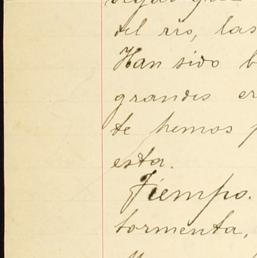 del río, las
Han sido b
grandes er
te hemos p
esta.
Tiempo.
tormenta,